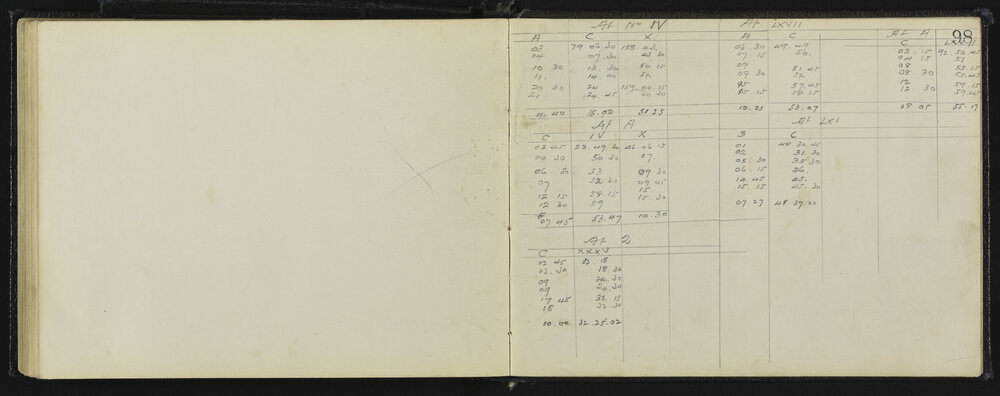 98
At No IV
A C X
03 79.06.30 158.43.
04 07.30 43 30
10 30 13.30 50.15
11. 14.00 51.
20 30 24 159.00.15
21 24.45 00 30
11.40 15.02 51 25
At A
C IV X
03 45 23.49 30 46.06 15
04.30 50 30 07.
06.30 53 09 30
07 52.30 09 45
12 15 58.15 15
12 30 59 15 30
07.45 53.47 10.30
At 2
C XXXV
02.45 02 18
03.30 18 30
09 24.30
09 24.30
17 45 32 15
18 32.30
10.00 32.25.02
At LXVII
A C
06 30 49.49
07 15 50.
09 51.45
09.30 52
15 57.45
15.15 58.15
53.07
At LXI
B C
01 48 30.45
02 31.30
05 30 35 30
06 15 36.
14 45 45.
15.15 45.30
07.27 48 37.22
At A
C LXVII
03.15 92.50.45
04 15 51
08 55.15
08 30 55.45
12 59.15
12.30 59.45
28 05 55.17